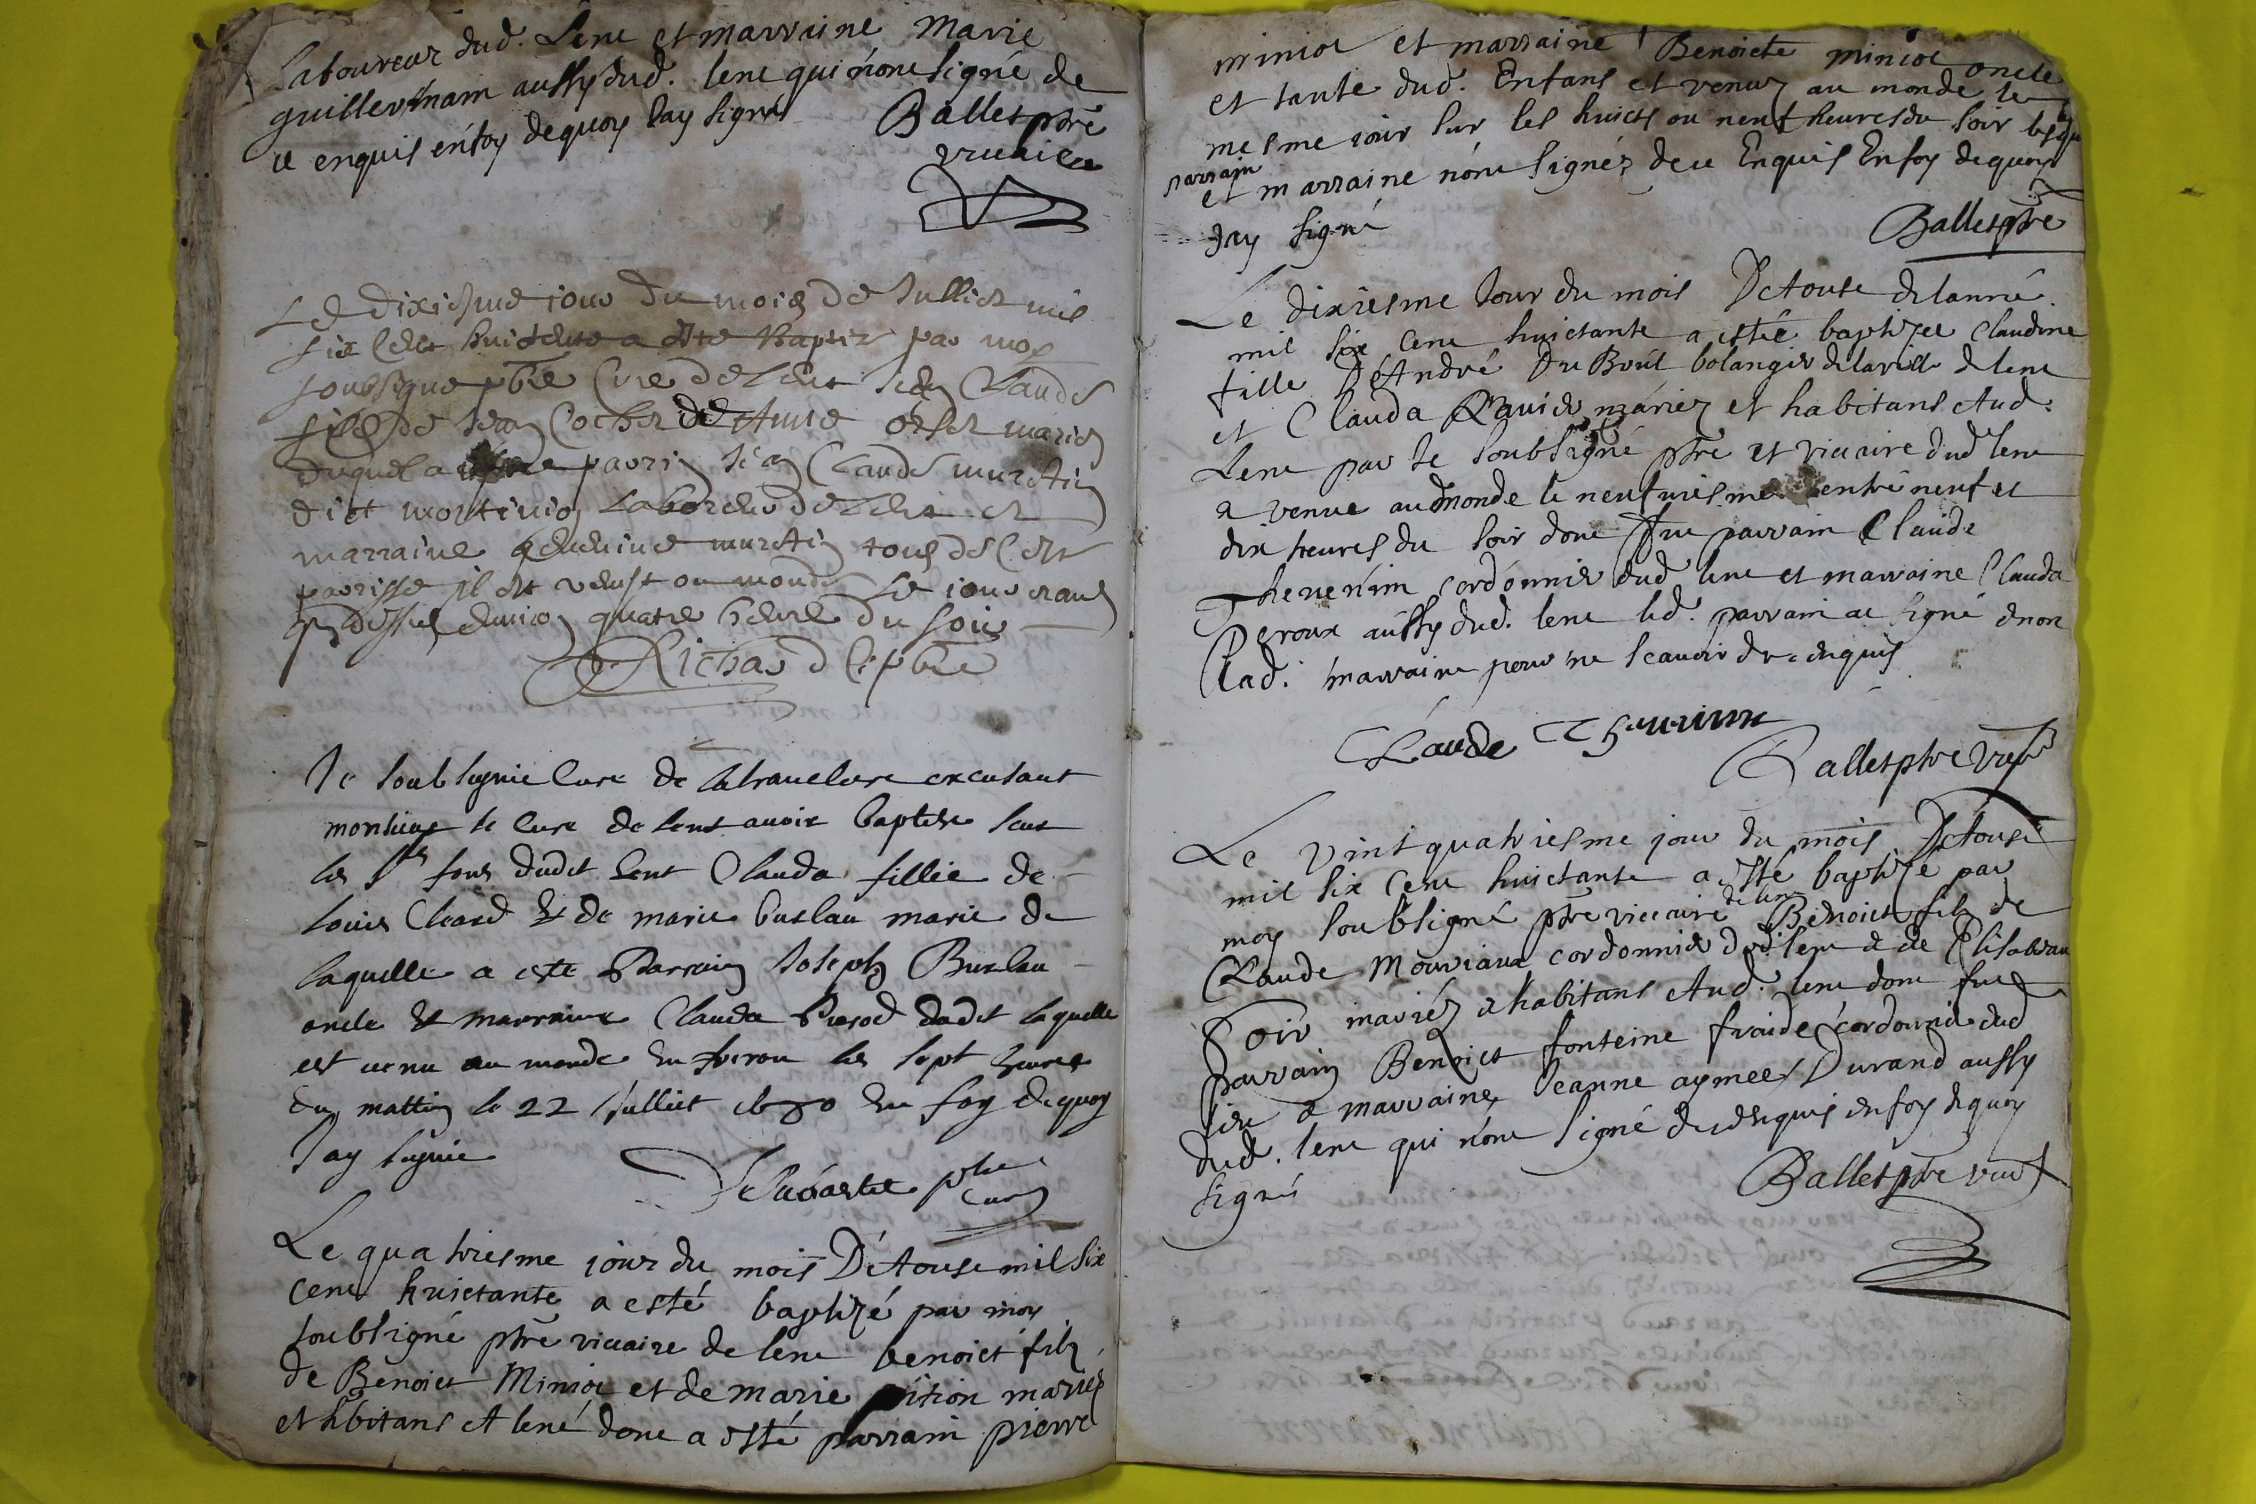 Laboureur dud. Lent et marraine Marie
guillermain aussy dud. lent qui n'ont signé de
ce enquis en foy de quoy Jay signé Ballet ptre
vicaire
Le dixiesme jour du mois de Julliet mil
six cent huictente a esté Baptiz par moy
soubsigne pbre Cure de Lent Jean Claude
filz de Jean Cochet de Anne maries
duquel a parrin Jean Claude
dict Laboreur de Lent et
marraine tous de Cette
parrisse il est venust ou monde Le jour
quatre heure du soir
Richard C pbre
Je soubsignie Cure de excusant
monsieur le Cure de Lent avoir baptise sur
les Sts fons dudit Lent Clauda fillie de
Louis Cleard & de marie Burlau marie de
laquelle a este Parrain Joseph Burlau
oncle & marraine Clauda Perrod dudit laquelle
est venu au monde environ les sept heures
du mattin le 22 Julliet 1680 En foy de quoy
Jay signie
ptre Curé
Le quatriesme jour du mois D'Actoust mil six
Cent huictante a esté baptizé par moy
soubsigné ptre vicaire de lent benoict filz
de Benoict Miniot et de marie pition mariez
et hbitans A lent dont a esté parrain pierre
miniot et marraine Benoicte miniot oncle
et tante dud. Enfans et venuz au monde le
mesme jour sur les huict ou neuf heures du soir
parrain
et marraine n'ont signéz de ce Enquis En foy de quoy
Jay signé
Ballet ptre
Le dixiesme Jour du mois D'Actoust de lanné
mil six Cent huictante a estée baptizee Claudine
fille D'André Du Bout bolangier de la ville de lent
et Clauda Ravier mariez et habitans Aud.
Lent par Je soubsigné ptre et vicaire dud lent
a venue au monde le neufviesme entre neuf et
dix heures du soir dont fut parrain Claude
Thevenin cordonnier dud lent et marraine Clauda
Peroux aussy dud. lent led. parrain a signé & non
Lad. marraine pour ne scavoir de ce enquis
Claude Thevenin
Ballet ptre vic
Le vint quatriesme jour du mois D'Actoust
mil six Cent huictante a esté baptizé par
moy soubsigné ptre viccaire de lent Benoict fils de
Claude Mouriaux cordonnier dud. lent & de Elisabeau
Soir mariéz & habitans Aud. lent dont fut
parrain Benoict fonteine fraide cordonnie dud
lieu & marraine Jeanne aymee Durand aussy
dud. lent qui n'ont signé de ce enquis en foy de quoy
signé
Ballet ptre vic